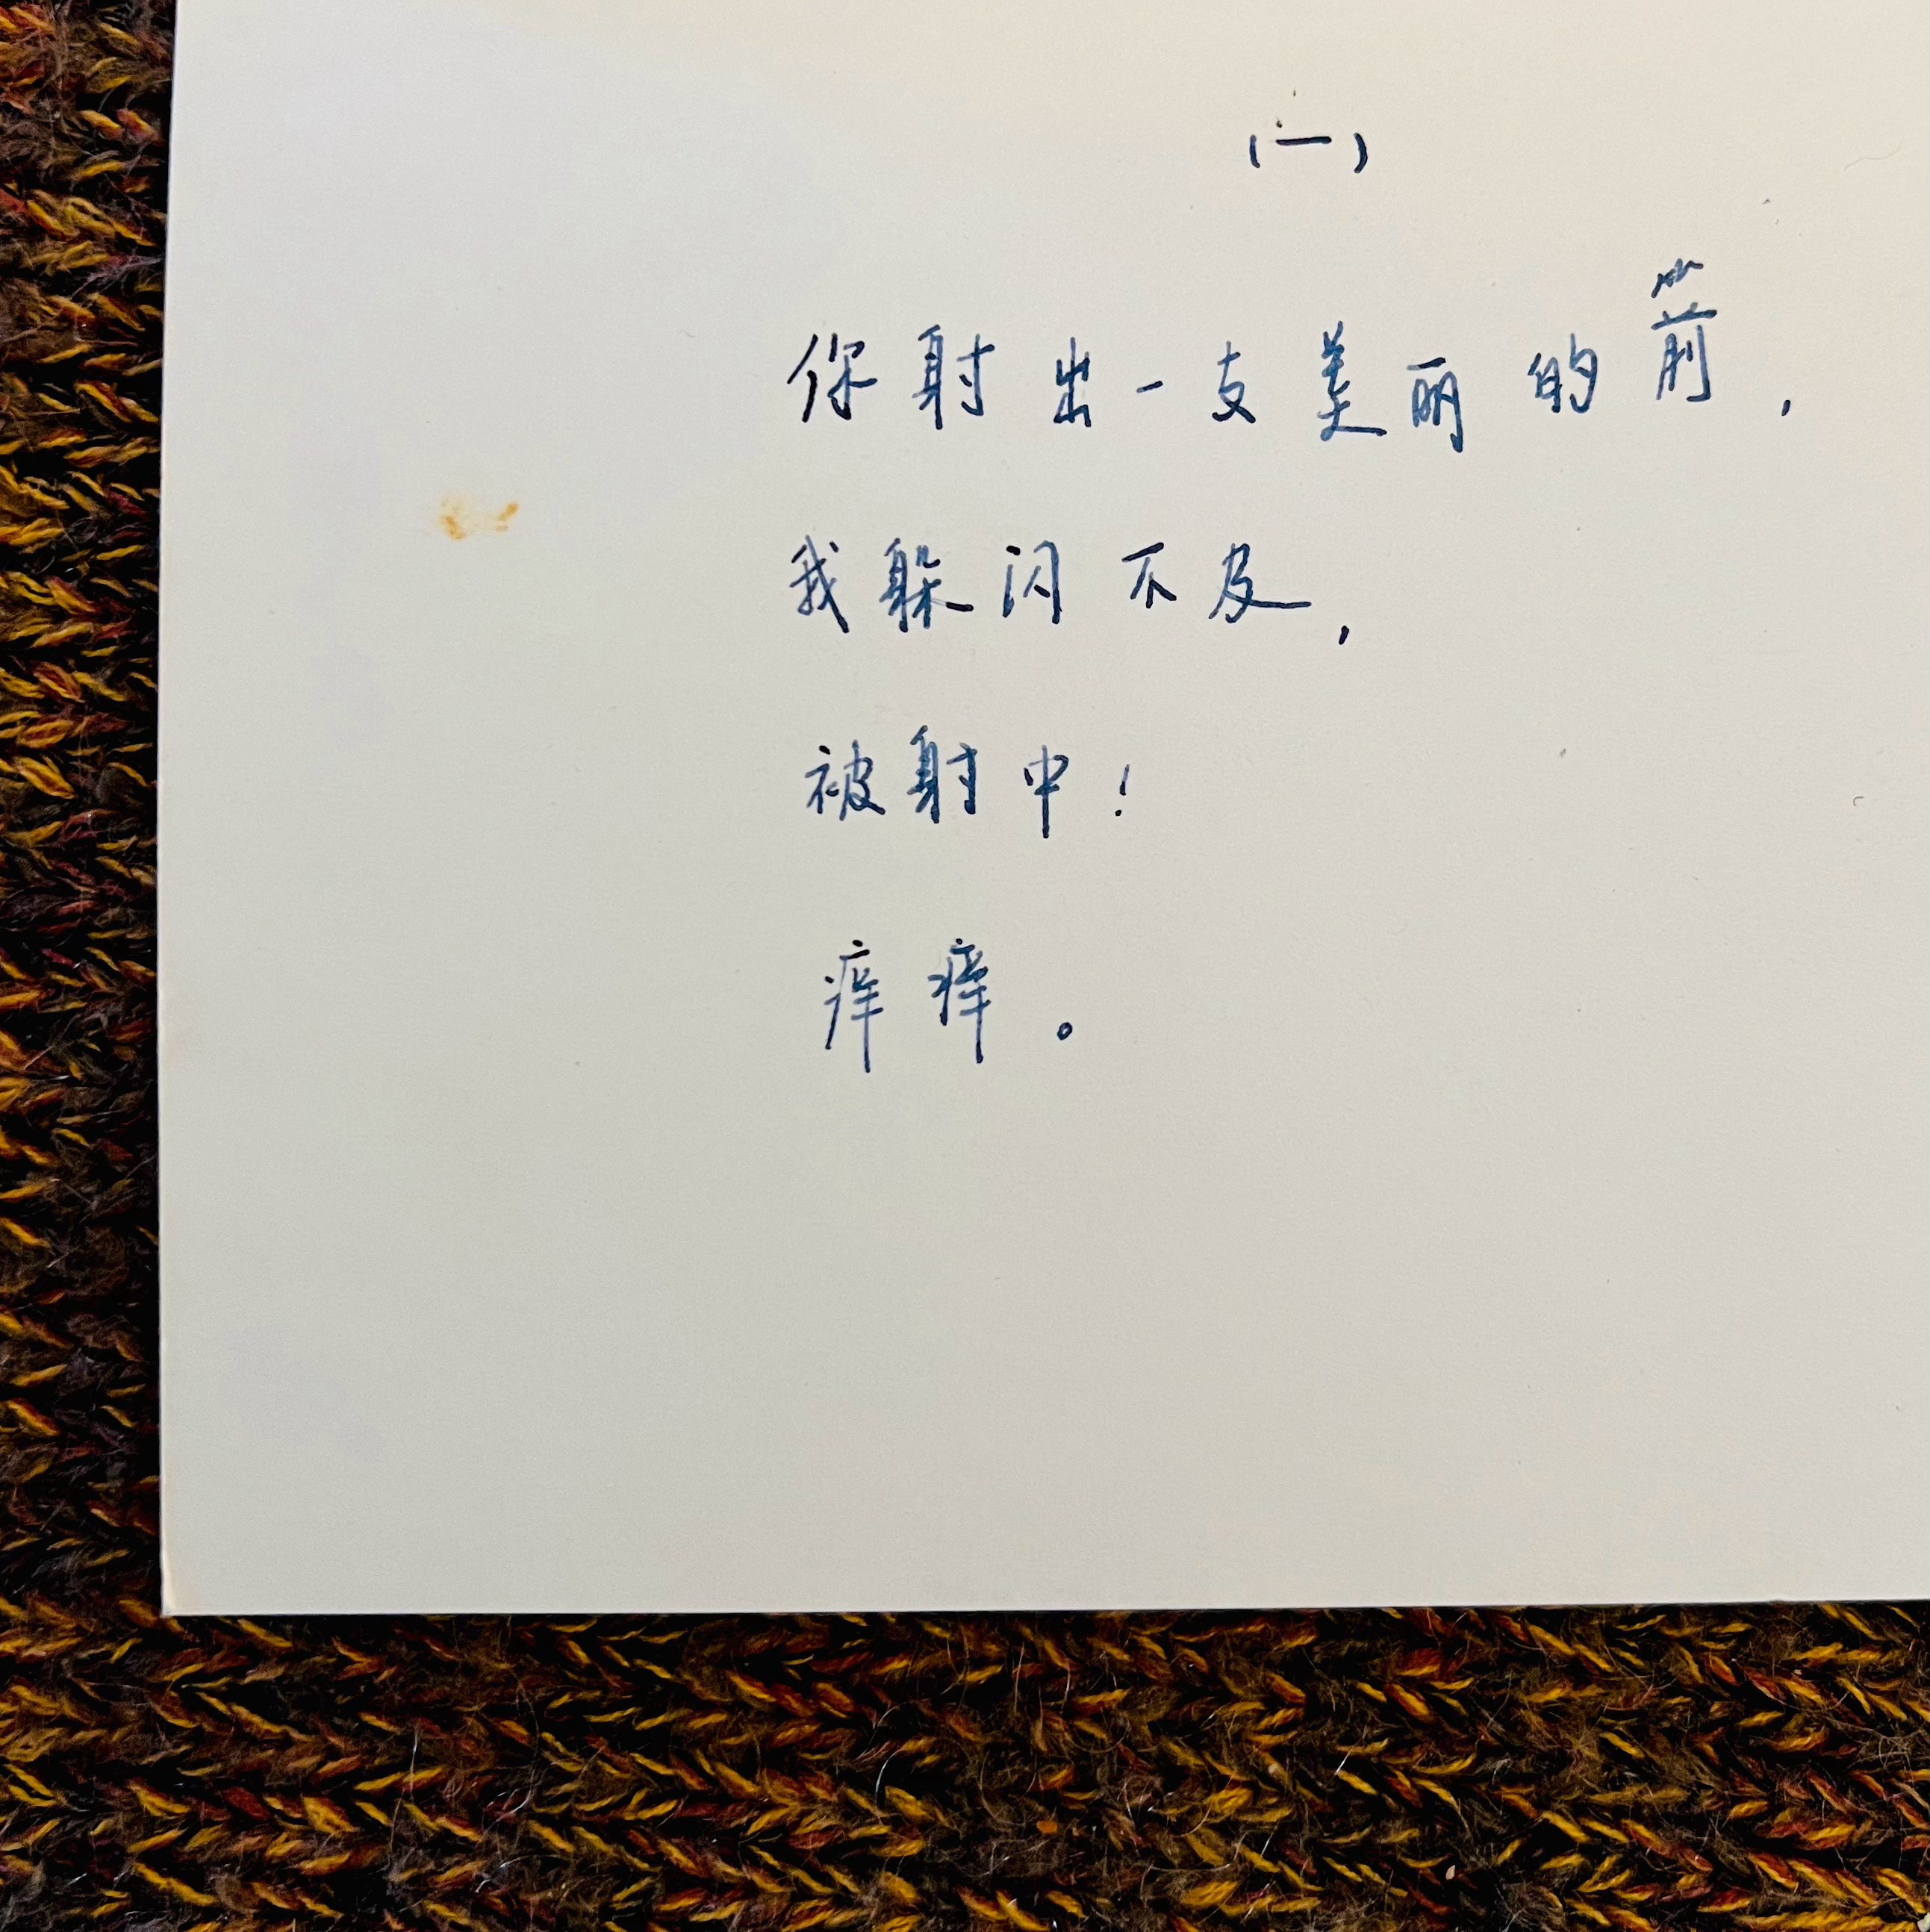 （一）
你射出一支美丽的箭，
我躲闪不及，
被射中！
痒痒。